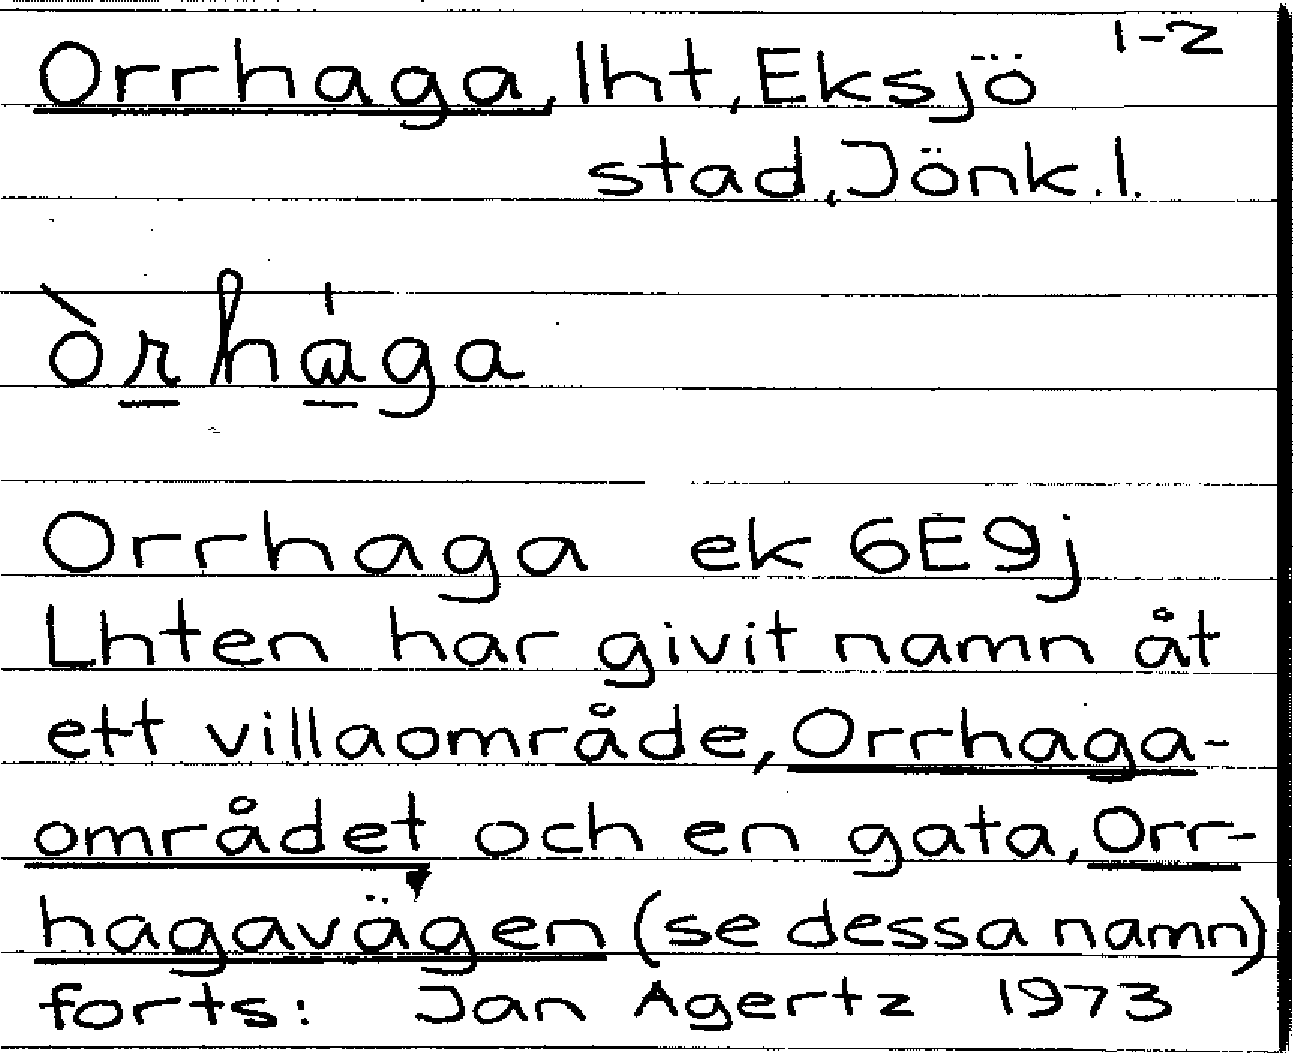 Orrhaga, lht, Eksjö 1-2
stad, Jönk.l.
òrhàga
Orrhaga ek 6E9j
Lhten har givit namn åt
ett villaområde, Orrhaga-
området och en gata, Orr-
hagavägen (se dessa namn)
forts: Jan Agertz 1973